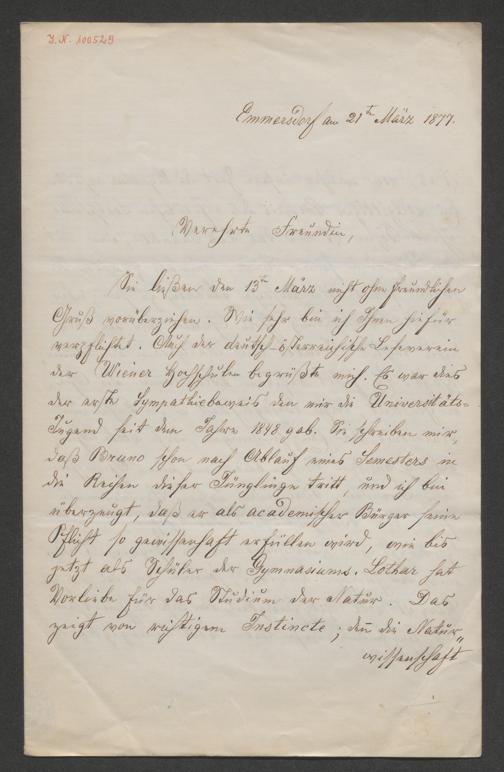 J. N. 100529
Emmersdorf am 21ten März 1877.
Verehrte Freundin,
Sie ließen den 13ten März nicht ohne freundlichen
Gruß vorüberziehen. Wie sehr bin ich Ihnen hiefür
verpflichtet. Auch der deutsch-österreichische Leseverein
der Wiener Hochschulen begrüßte mich. Es war dies
der erste Sympathiebeweis den mir die Universitäts-
Jugend seit dem Jahre 1848 gab. Sie schreiben mir,
daß Bruno schon nach Ablauf eines Semesters in
die Reihen dieser Jünglinge tritt, und ich bin
überzeugt, daß er als academischer Bürger seine
Pflicht so gewissenhaft erfüllen wird, wie bis
jetzt als Schüler des Gymnasiums. Lothar hat
Vorliebe für das Studium der Natur. Das
zeigt von richtigem Instincte; deñ die Natur„
wissenschaft